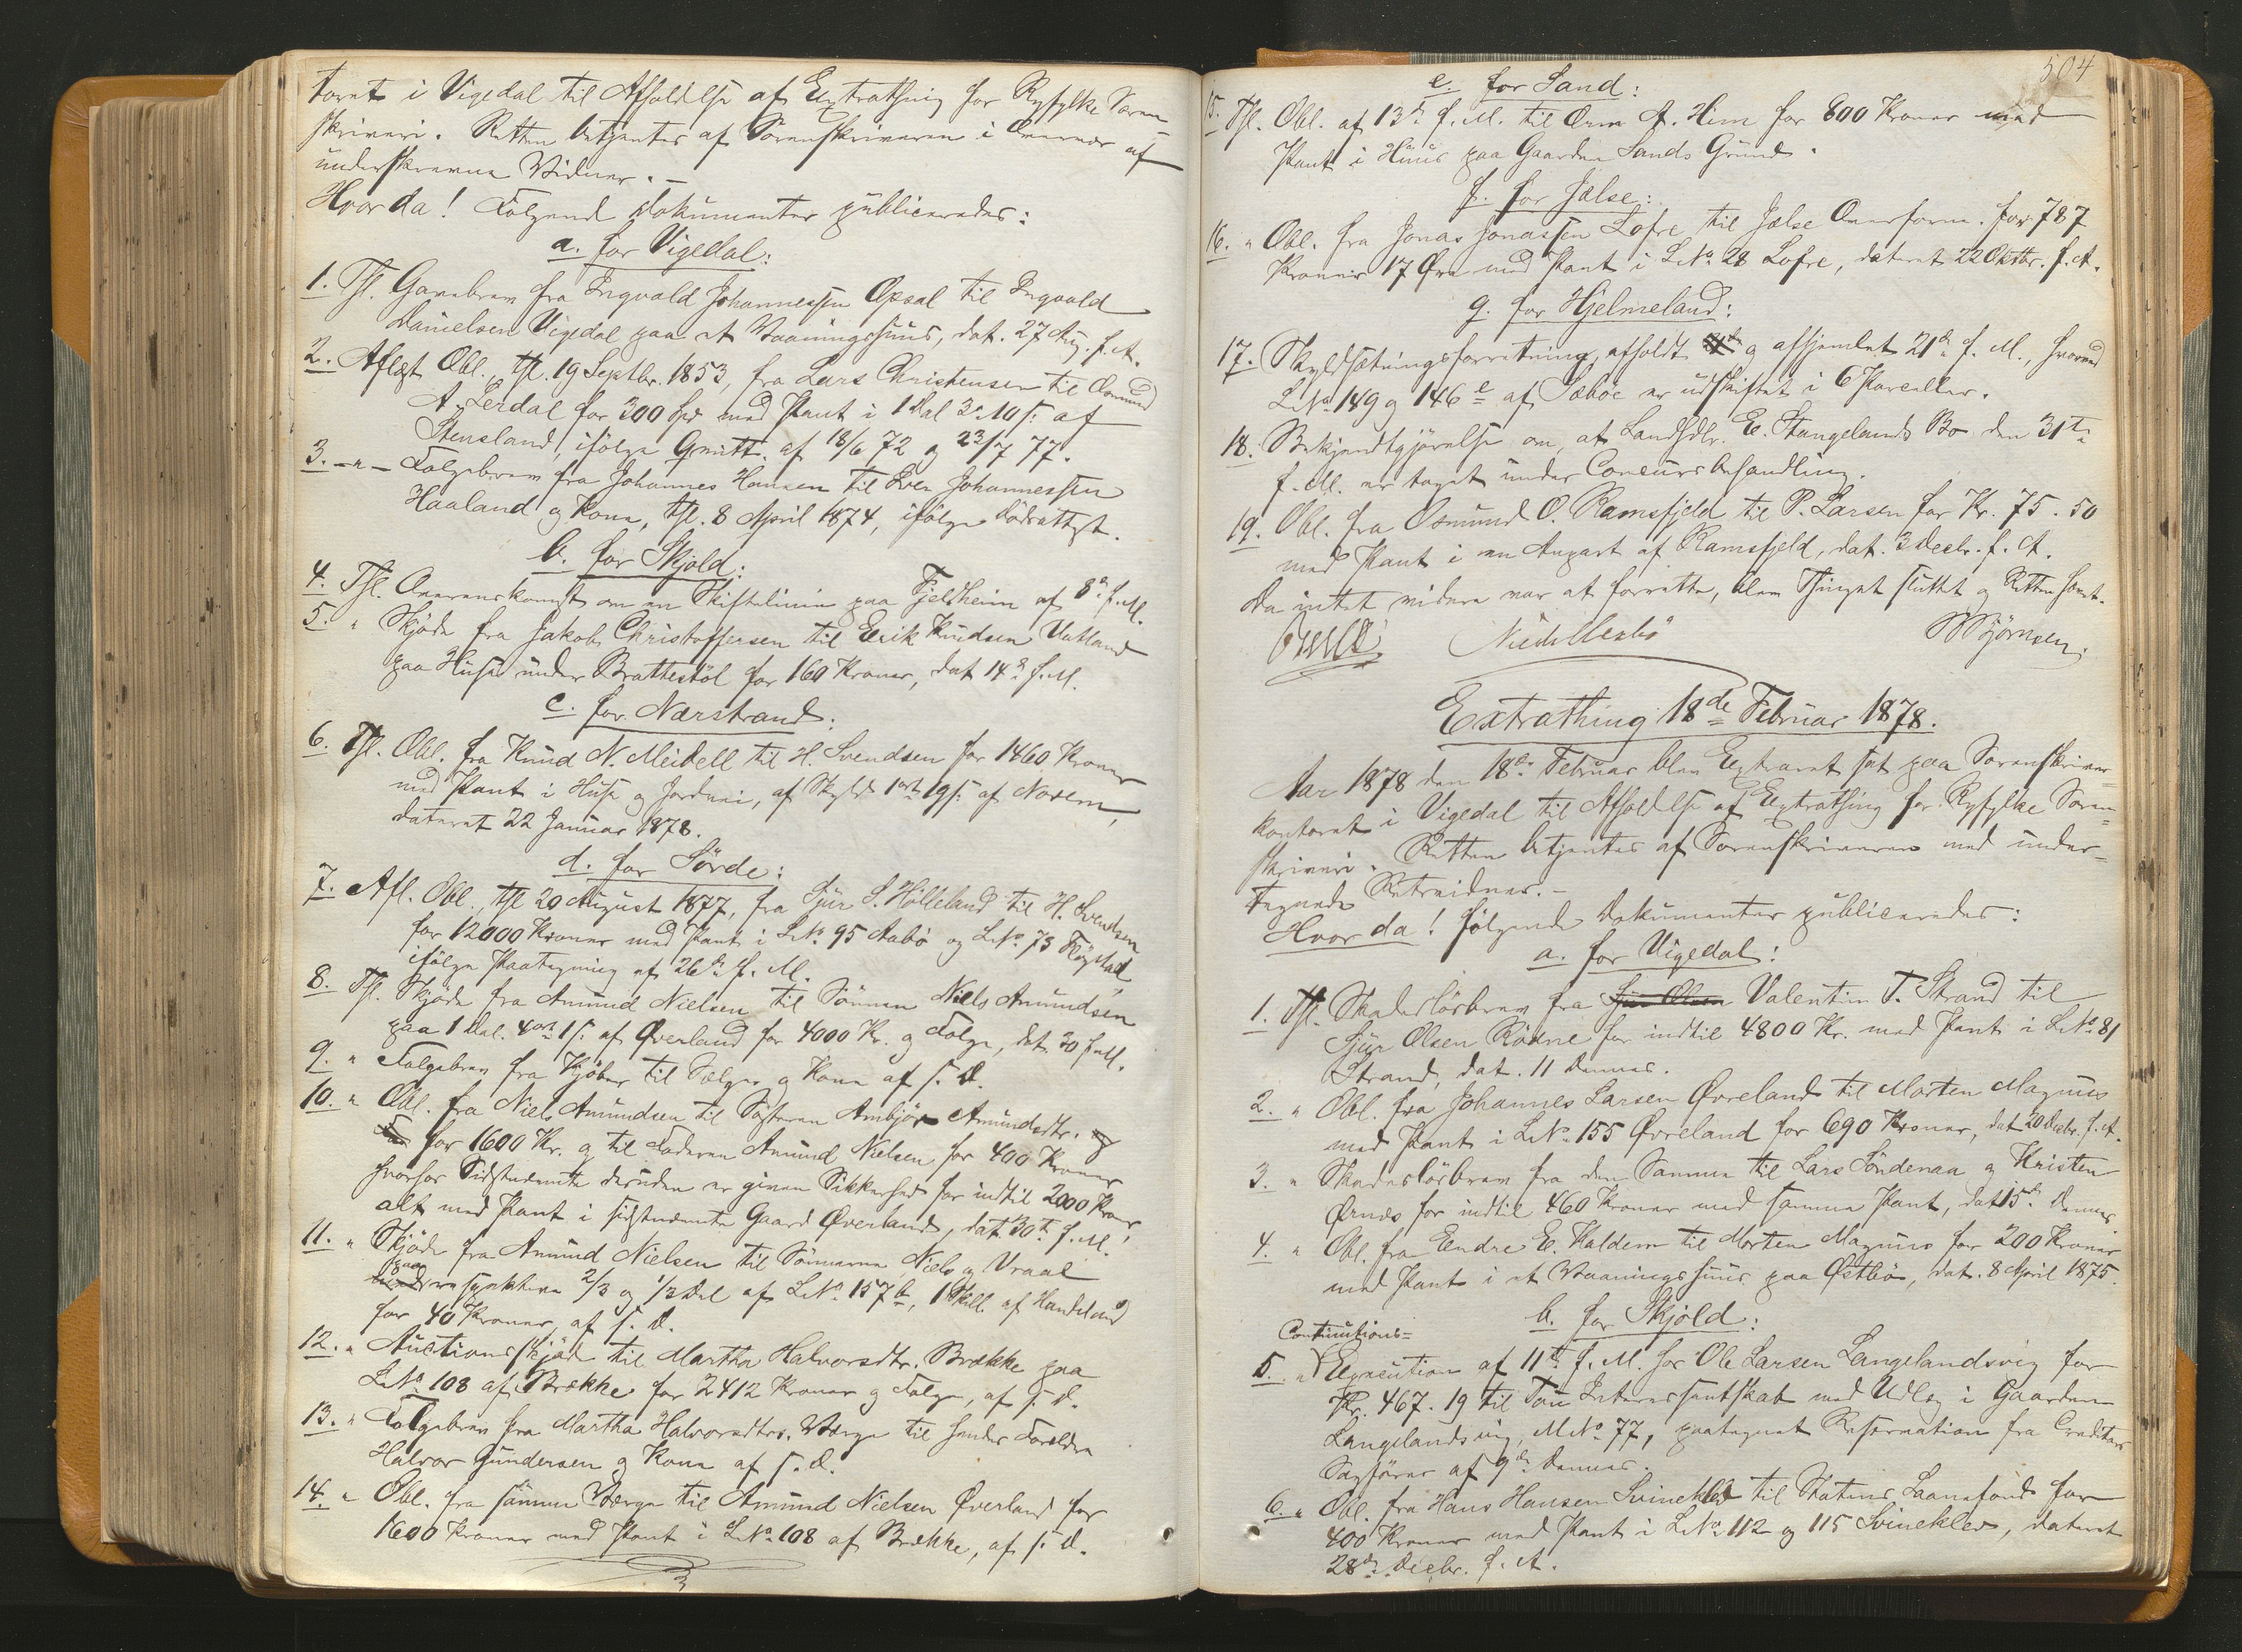 toret i Vigedal til Afholdelse af Extrathing for Ryfylke Soren-
skriveri. Retten betjentes af Sorenskriveren i Overvær af
underskrevne Vidner. –
Hvorda! Følgende Dokumenter publiceredes:
a. for Vigedal:
1. Thl. Gavebrev fra Ingvald Johannessen Opsal til Ingvald
Danielsen Vigedal paa et Vaaningshuus, dat. 27 Aug. f. A.
2. Aflæst Obl., thl. 19 Septbr. 1853, fra Lars Christensen til Osmund
A. Lerdal for 300 Spd med Pant i 1 Dal 3 10 s. af
Stensland, ifølge Qvitt. af 18/6 72 og 23/7 77.
3. – " – Følgebrev fra Johannes Hansen til Iver Johannessen
Haaland og Kone, thl. 8 April 1874, ifølge Dødsattest.
b. for Skjold:
4. Thl. Overenskomst om en Skiftelinie paa Fjeldheim af 8de f. M.
5. " Skjøde fra Jakob Christoffersen til Eerik Knudsen Vatland
paa Huse under Brattestöl for 160 Kroner, dat 14de f. M.
c. for Nærstrand:
6. Thl. Obl. fra Knud N. Meidell til H. Svendsen for 1460 Kroner
med Pant i Huse og Jordvei, af Skyld 1 ort 19 s. af Norem,
dateret 22 Januar 1878.
d. for Sörde:
7. Afl. Obl., thl 20 August 1877, fra Sjur S. Hölleland til H. Svendsen
for 12000 Kroner med Pant i LNo. 95 Aabö og LNo. 73 Fløgstad,
ifölge Paategning af 26de f. M.
8. Thl. Skjöde fra Amund Nielsen til Sönnen Niels Amundsen
paa 1 Dal. 4 ort 1 s. af Øverland for 4000 Kr. og Følge, dat. 30 f. M.
9. " Følgebrev fra Kjöber til Sælger og Kone af s. D.
10. " Obl. fra Niels Amundsen til Søsteren Ambjör Amundsdtr. og
for 1600 Kr. og til Faderen Amund Nielsen for 400 Kroner,
hvorfor Sidstnævnte desuden er given Sikkerhed for indtil 2000 Kroner,
alt med Pant i sidstnævnte Gaard Øverland, dat. 30te f. M.
11. " Skjöde fra Amund Nielsen til Sönnerne Niels og Vraal
paa respektive 2/3 og 1/3 Del af LNo. 157 b, 1 Skill. af Handeland
for 40 Kroner, af s. D.
12. " Auctionsskjöde til Martha Halvorsdtr. Brække paa
LNo. 108 af Brække for 2412 Kroner og Følge, af s. D.
13. " Følgebrev fra Martha Halvorsdtrs. Værge til hendes Forældre
Halvor Gundersen og Kone af s. D.
14. " Obl. fra samme Værge til Amund Nielsen Øverland for
1600 Kroner med Pant i LNo. 108 af Brække, af s. D.
504
e. for Sand:
15. Thl. Obl. af 13de f. M. til Orm A. Hiim for 800 Kroner med
Pant i Huus paa Gaarden Sands Grund.
f. for Jelse:
16. " Obl. fra Jonas Jonassen Lofre til Jelse Overform. for 787
Kroner 17 Øre med Pant i LNo. 28 Lofre, dateret 22 Oktbr. f. A.
g. for Hjelmeland:
17. Skyldsætningsforretning, afholdt og afhjemlet 21de f. M., hvorved
LNo. 149 og 146 e af Sæböe er udskiftet i 6 Parceller.
18. Bekjendtgjörelse om, at Landhdlr. E. Stangelands Bo den 31te
f. M. er taget under Concursbehandling.
19. Obl. fra Osmund O. Ramsfjeld til P. Larsen for Kr. 75.50
med Pant i en Anpart af Ramsfjeld, dat. 3 Decbr. f. A.
Da intet videre var at forrette, blev Thinget sluttet og Retten hævet.
Bjørnsen.
Extrathing 18de Februar 1878.
Aar 1878 den 18de Februar blev Extraret sat paa Sorenskriver-
kontoret i Vigedal til Afholdelse af Extrathing for Ryfylke Soren-
skriveri. Retten betjentes af Sorenskriveren med under-
tegnede Retsvidner. –
Hvorda! følgende Dokumenter publiceredes:
a. for Vigedal:
1. Thl. Skadeslösbrev fra Valentin T. Strand til
Sjur Olsen Rödne for indtil 4800 Kr. med Pant i LNo. 81
Strand, dat. 11 Dennes.
2. " Obl. fra Johannes Larsen Øvreland til Morten Magnus
med Pant i LNo. 155 Øvreland for 690 Kroner, dat 20 Decbr. f. A.
3. " Skadeslösbrev fra den Samme til Lars Söndenaa og Kristen
Ørnes for indtil 460 Kroner med samme Pant, dat 15de Dennes.
4. " Obl. fra Endre E. Haldem til Morten Magnus for 200 Kroner
med Pant i et Vaaningshuus paa Østbö, dat. 8 April 1875.
b. for Skjold:
Continutions-
5. " Execution af 11te f. M. hos Ole Larsen Langelandsvig for
Kr. 467.19 til Tou Interessentskab med Udlæg i Gaarden
Langelandsvig, MNo. 77, paategnet Reservation fra Creditors
Sagförer af 9de Dennes.
6. " Obl. fra Hans Hansen Svinekled til Statens Laanefond for
400 Kroner med Pant i LNo. 112 og 115 Svinekled, dateret
28de Decbr. f. A.